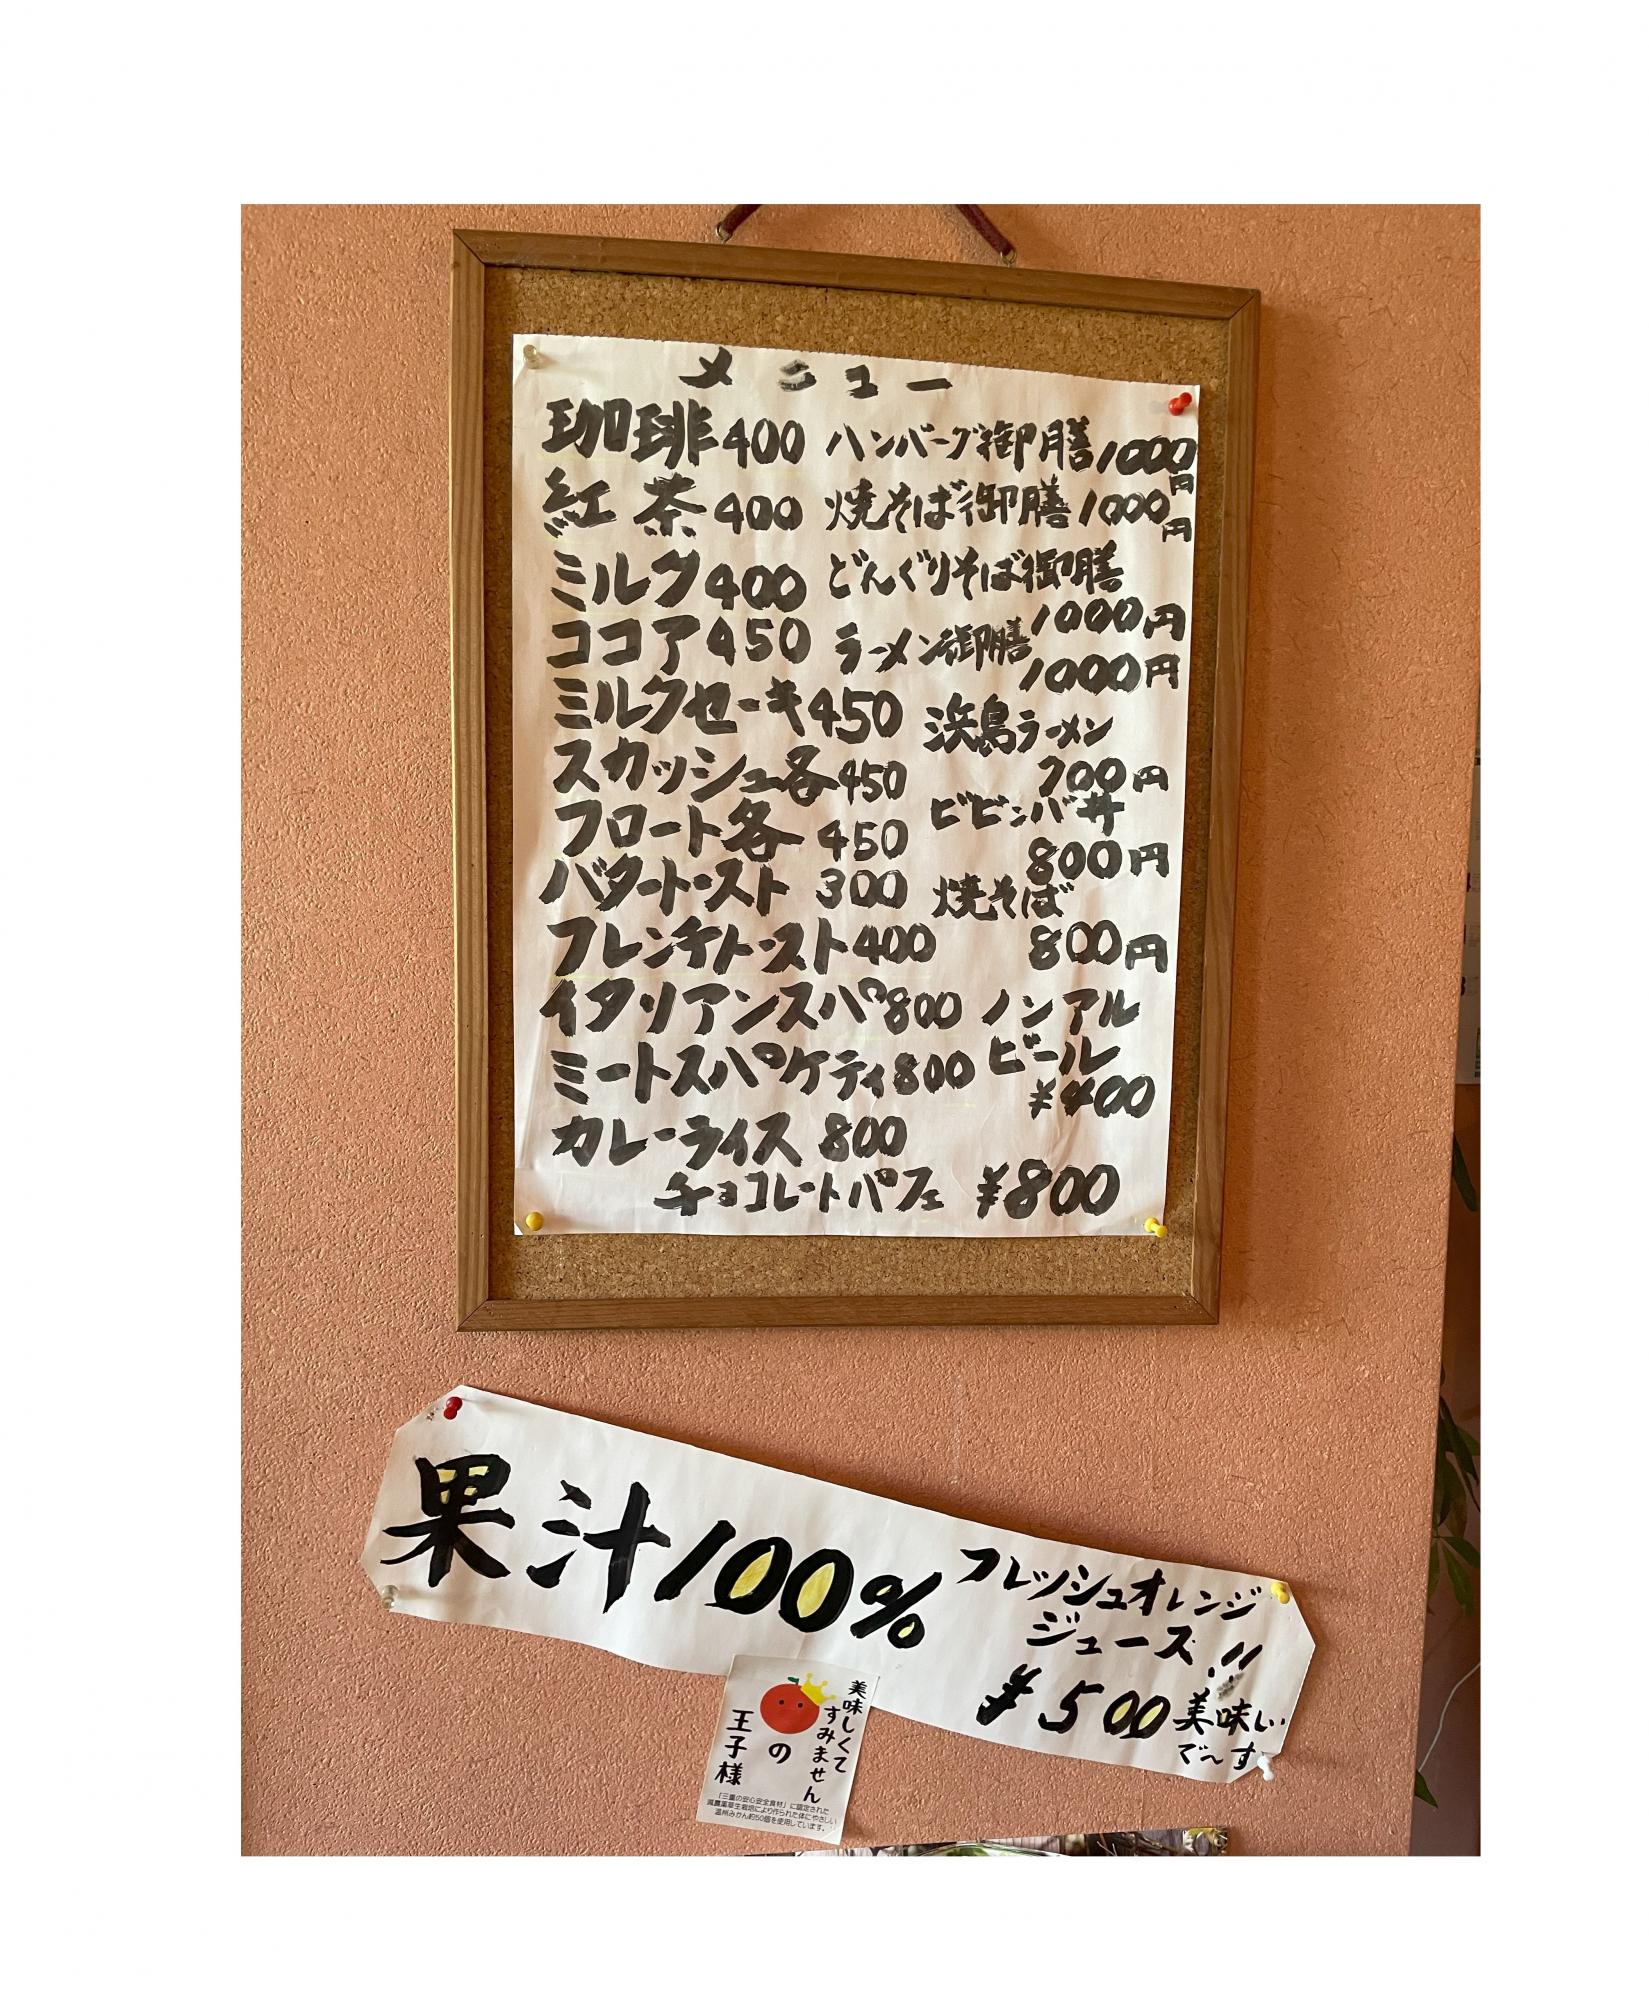 メニュー
珈琲400
紅茶400
ミルク400
ココア450
ミルクセーキ450
スカッシュ各450
フロート各450
バタートースト300
フレンチトースト400
イタリアンスパ800
ミートスパゲティ800
カレーライス800
チョコレートパフェ ¥800
ハンバーグ御膳1000円
焼そば御膳1000円
どんぐりそば御膳
1000円
ラーメン御膳
1000円
浜島ラーメン
700円
ビビンバ丼
800円
焼そば
800円
ノンアル
ビール
¥400
果汁100%
フレッシュオレンジ
ジュース!!
¥500 美味い
で〜す
美味しくて
すみません
の
王子様
「三重の安心安全食材」に認定された
減農薬草生栽培により作られた体にやさしい
温州みかん約50個を使用しています。